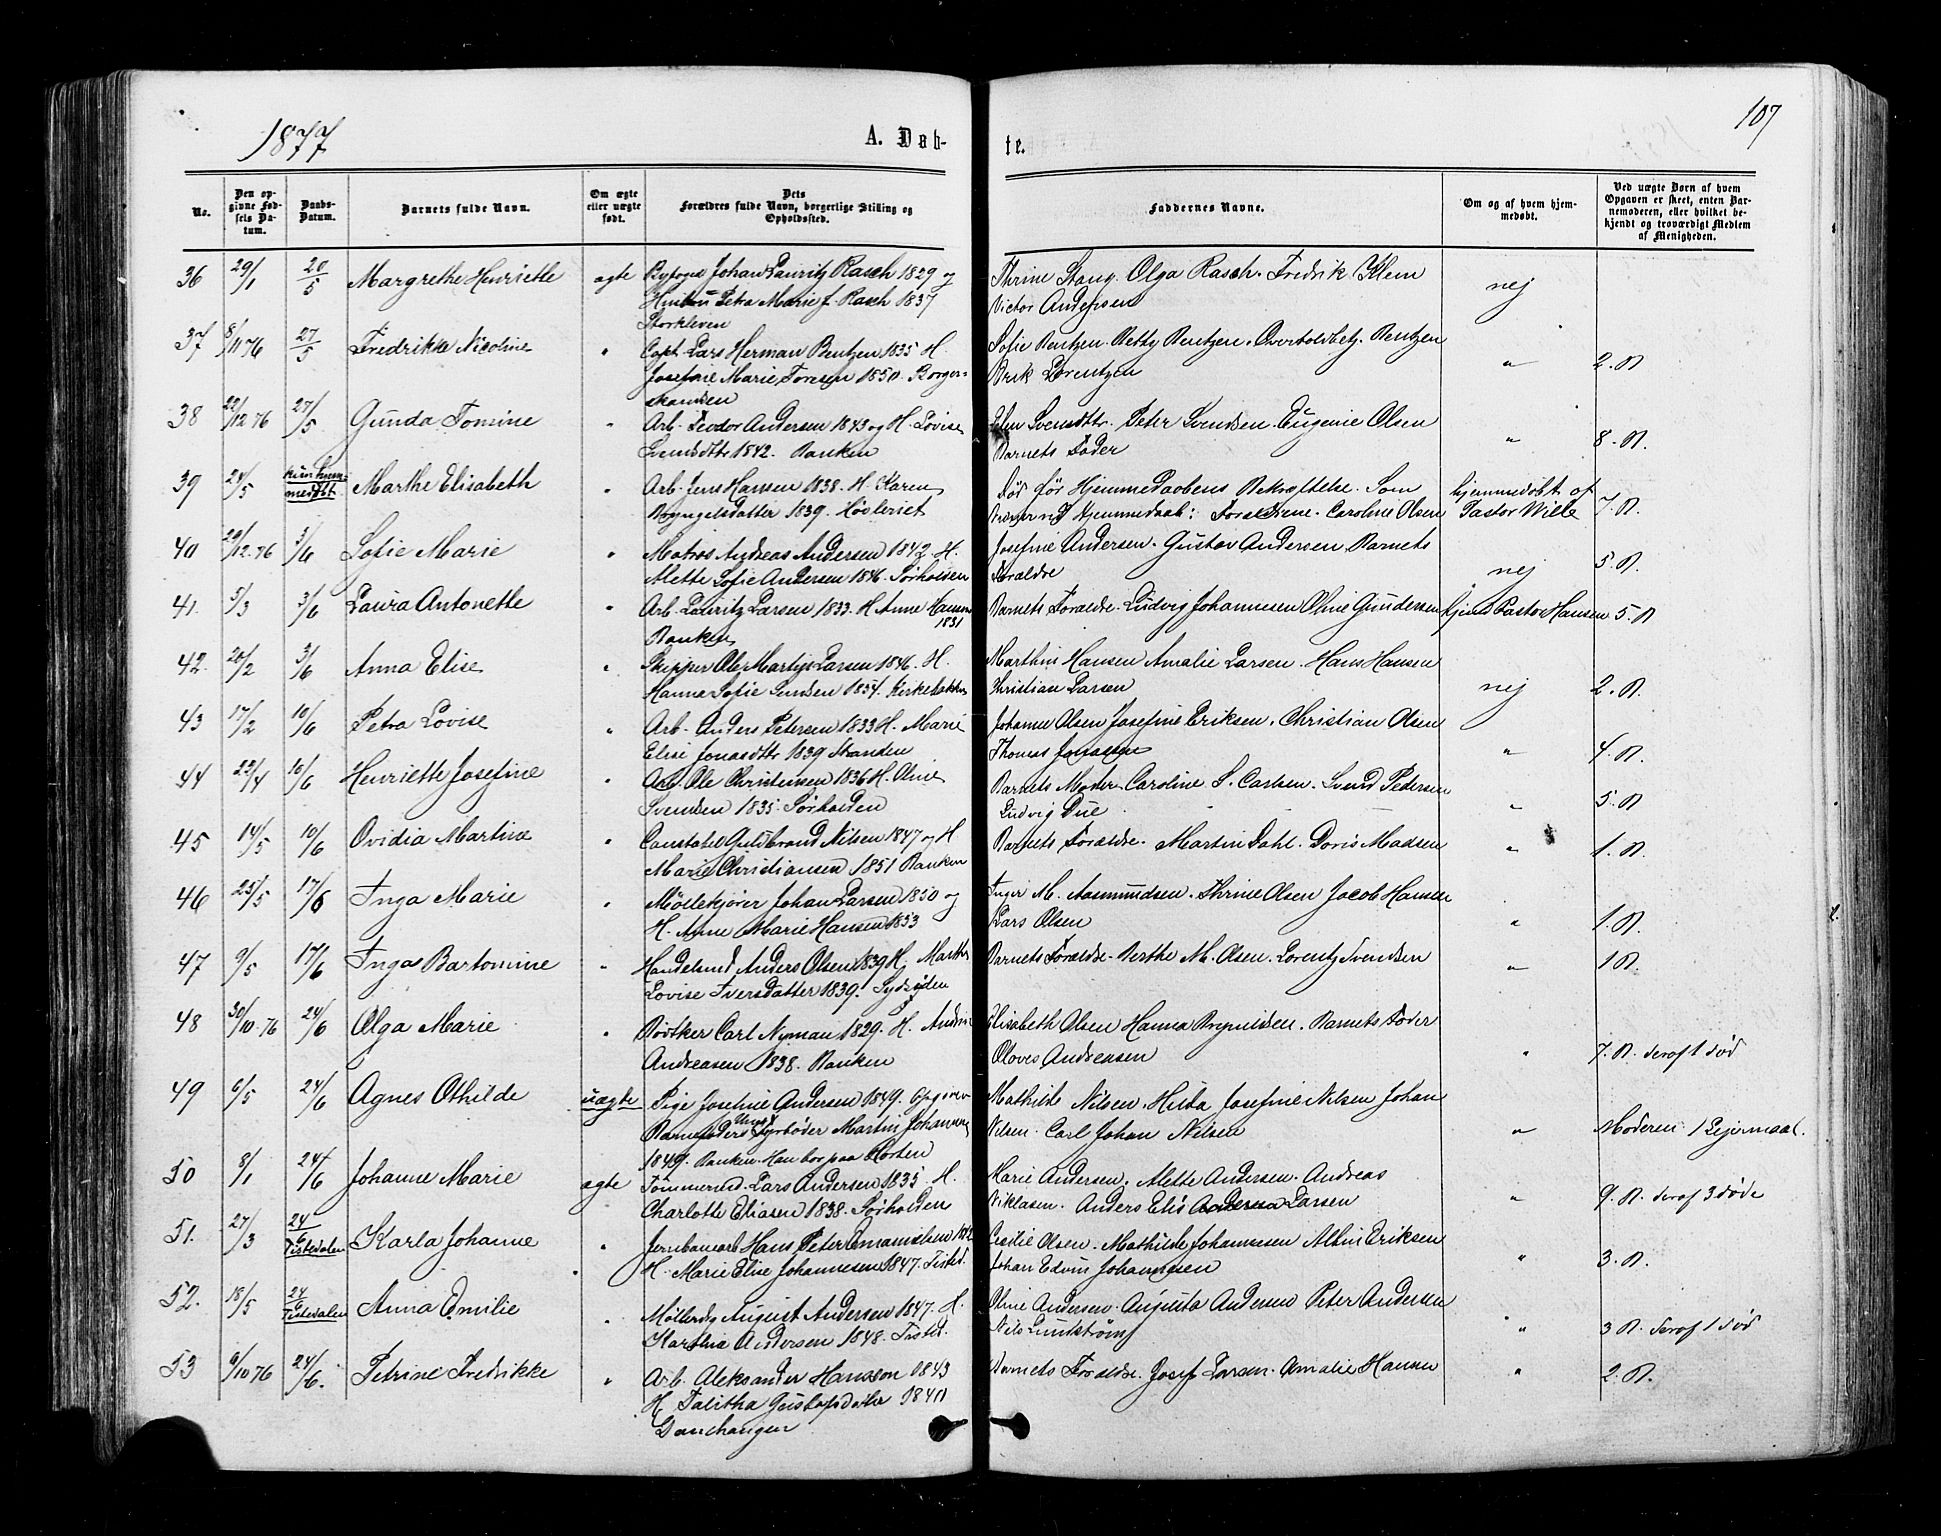 1877
A. Døb-
te.
107
No.
Den op-
givne Fød-
sels Da-
tum.
Daabs-
Datum.
Barnets fulde Navn.
Om ægte
eller uægte
født.
Dets
Forældres fulde Navn, borgerlige Stilling og
Opholdssted.
Faddernes Navne.
Om og af hvem hjem-
medøbt.
Ved uægte Børn af hvem
Opgaven er skeet, enten Bar-
nemoderen, eller hvilket be-
kjendt og troværdigt Medlem
af Menigheden.
36 29/1 20/5 Margrethe Henriette ægte Byfoged Johan Lauritz Rasch 1829 og Thrine Stang. Olga Rasch. Fredrik Klem nej
Hustru Petra Marie f. Rasch 1837 Victor Andersen
Storkleven
37 8/11 76 27/5 Fredrikke Nicoline " Capt. Lars Herman Bentzen 1835 H. Sofie Bentzen. Betty Bentzen. Bentzen " 2. B.
Josefine Marie Toresen 1850. Borger- Lorentzen
skandsen
38 22/12 76 27/5 Gunda Tomine " Arb. Teodor Andersen 1843 og H. Lovise Elen Svendsdtr. Peter Svendsen. Eugenie Olsen " 8. B.
Svendsdtr 1842. Banken Barnets Fader
39 24/5 kun hjem- Marthe Elisabeth " Arb. Jens Hansen 1838. H. Karen Død før Hjemmedaabens Bekræftelse. Som hjemmedøbt af
medøbt Bryngelsdatter 1839. Høvleriet ved Hjemmedaab: Forældrene. Caroline Olsen Pastor Wille 7. B.
40 29/12 76 3/6 Sofie Marie " Matros Andreas Andersen 1842. H. Josefine Andersen. Gustav Andersen. Barnets
Mette Sofie Andersen 1846. Sørholden Forældre nej 5. B.
41. 5/3 3/6 Laura Antonette " Arb. Lauritz Larsen 1833. H. Anne Hansen Barnets Forældre. Ludvig Johannesen Oline Gundersen hjemd. Pastor Hansen 5. B
1831
Banken
42. 20/2 3/6 Anna Elise " Skipper Ole Martin Larsen 1846. H. Marthin Hansen Amalie Larsen. Hans Hansen
Hanna Sofie 1854. Kirkebakken Christian Larsen nej 2. B.
43 17/2 10/6 Petra Lovise " Arb. Anders Petersen 1833 H. Marie Johanne Olsen Josefine Eriksen. Christian Olsen
Elise Jonasdtr 1839 Stranden Thomas Jonassen " 4. B.
44 23/4 10/6 Henriette Josefine " Arb. Ole Christensen 1836 H. Oline Barnets Moder. Caroline S. Carlsen. Svend Pedersen
Svendsen 1835. Sørholden Ludvig Due " 5. B
45 14/5 10/6 Ovidia Martine " Constabel Guldbrand Nilsen 1847 og H Barnets Forældre. Martin Dahl. Doris Madsen " 1. B.
Marie Christiansen 1851 Banken
46 25/5 17/6 Inga Marie " Møllekjører Johan Larsen 1850 og Inger M. Aasmundsen. Thrine Olsen Jacob Hansen
H. Anne Marie Hansen 1853 Lars Olsen " 1. B.
47 9/5 17/6 Inga Bartomine " Handelsmd Anders Olsen 1839 H. Marthe Barnets Forældre. Berthe M. Olsen. Lorentz Svendsen " 1 B.
Lovise Iversdatter 1839. Sydsiden
48 30/10 76 24/6 Olga Marie " Bødtker Carl Nyman 1829. H. Elisabeth Olsen Hanna Brynildsen. Barnets Fader
Andreasen 1838. Banken Oloves Andreasen " 7. B. deraf 1 død
49 6/5 24/6 Agnes Othilde uægte Pige Josefine Andersen 1849. Opgiven Mathilde Nilsen. Hilda Josefine Nilsen Johan
Barnefader: Ungk. Fyrbøder Martin Johannes Nilsen. Carl Johan Nilsen " Moderen 1 Lejermaal.
1849. Banken. Han bor paa Horten
50 8/1 24/6 Johanne Marie ægte Tømmermd. Lars Andersen 1835. H. Marie Andersen. Mette Andersen. Andreas
Charlotte Eliasen 1838. Sørholden Niklasen. Anders Elis Larsen " 9. B. deraf 3 døde
51. 27/3 24/6 Karla Johanne " Jernbanearb Hans Peter Emanuelsen Cecilie Olsen. Mathilde Johannesen Albin Eriksen
Tistedalen H. Marie Elise Johannesen 1847. Tisted. Johan Edvin Johannesen " 3. B.
52. 18/5 24/6 Anna Emilie " August Andersen 1847. H. Oline Andersen. Augusta Andersen Peter Andersen
Tistedalen Karthea Andersen 1848. Tisted. Nils Lundstrøm " 3 B. deraf 1 død
53 9/10 76 24/6. Petrine Fredrikke " Arb. Aleksander Hansson 1843 Barnets Forældre. Josef Larsen. Amalie Hansen " 2. B.
H. Talitha Gustafsdatter 1840